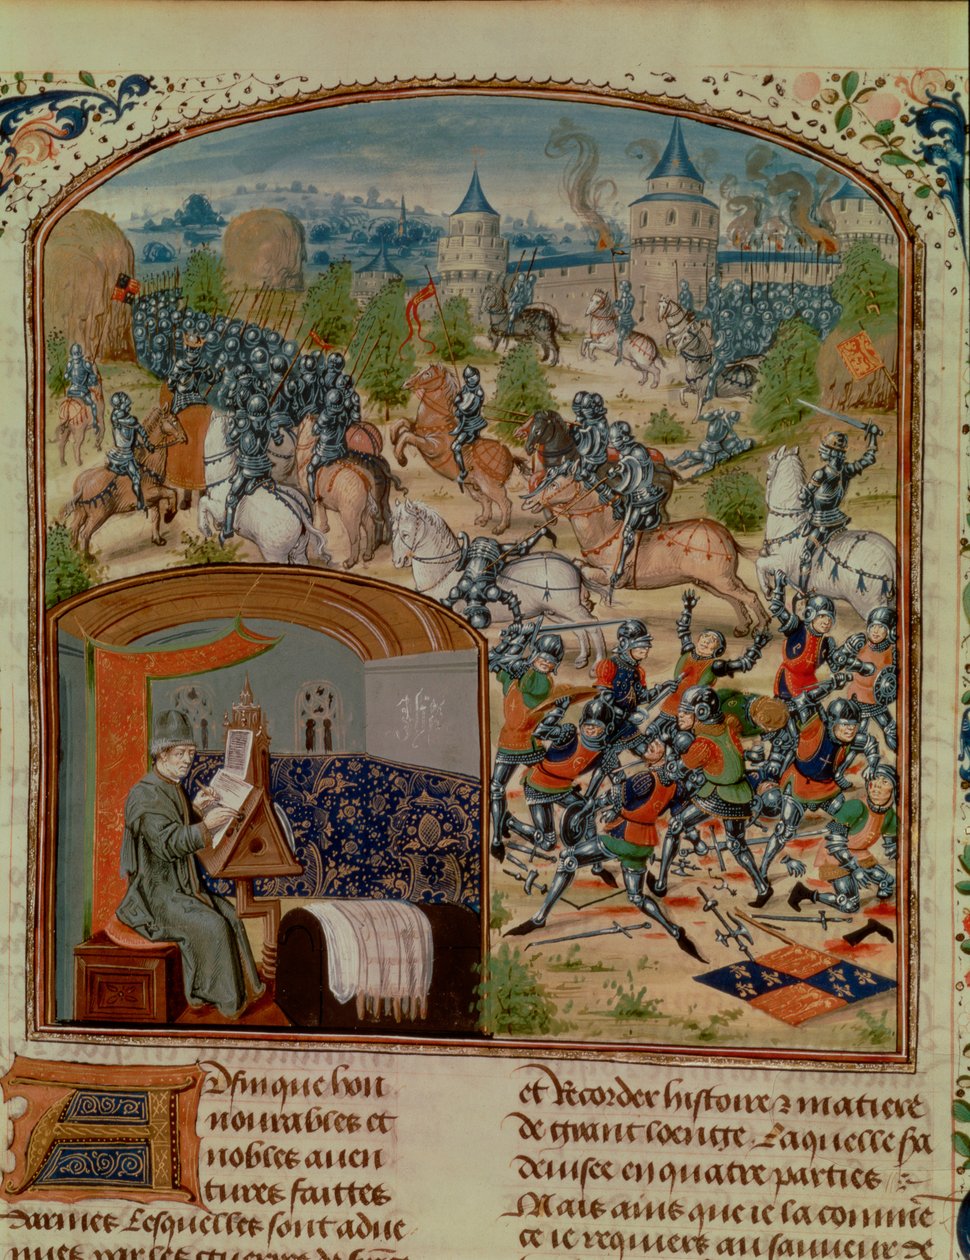 A
Afin que hon
nourables et
nobles aven
tures faittes
darmes Lesquelles sont adue
nues par les guerres de
et Recorder histoire z matiere
de grant loenge. Laquelle sa
deuisee en quatre parties
Mais ains que ie la comme
ce ie requiers au sauueur de